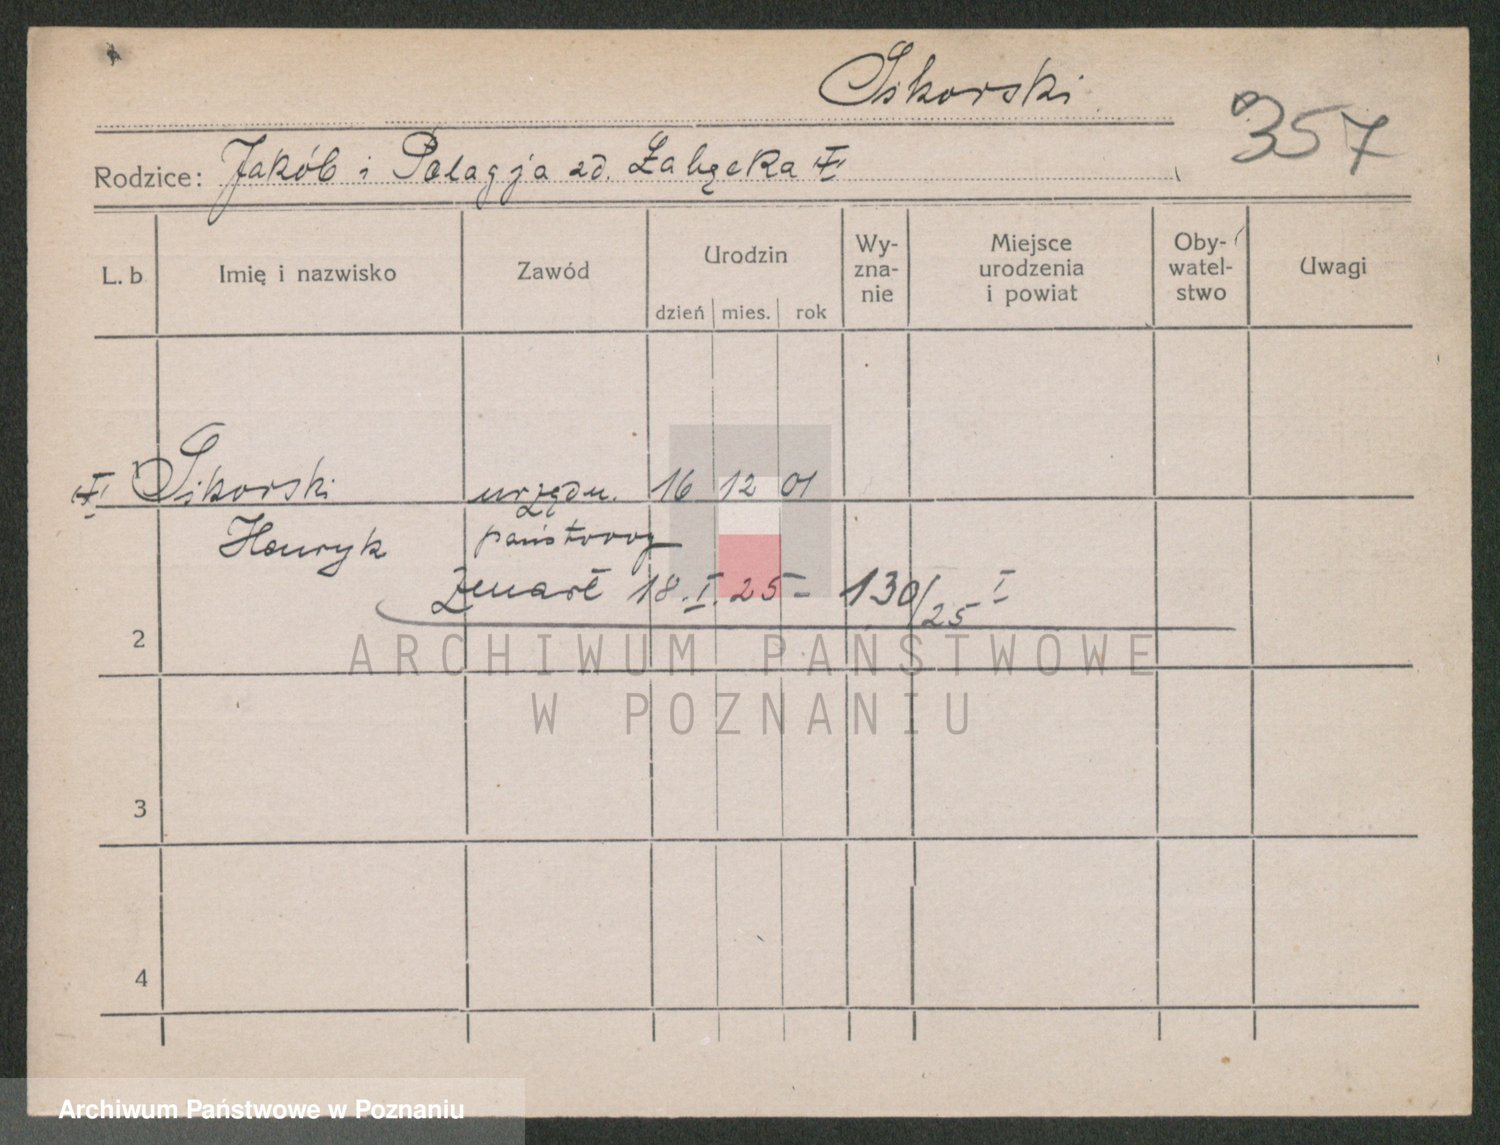 Sikorski
357
Rodzice: Jakób i Pelagja zd. Załęcka
L. b
Imię i nazwisko
Zawód
Urodzin
dzień mies. rok
Wy-
zna-
nie
Miejsce
urodzenia
i powiat
Oby-
watel-
stwo
Uwagi
1 Sikorski urzędn. 16 12 01
Henryk państwowy
Zmarł 18. I. 25 – 130/25 I
2
3
4
ARCHIWUM PAŃSTWOWE
W POZNANIU
Archiwum Państwowe w Poznaniu